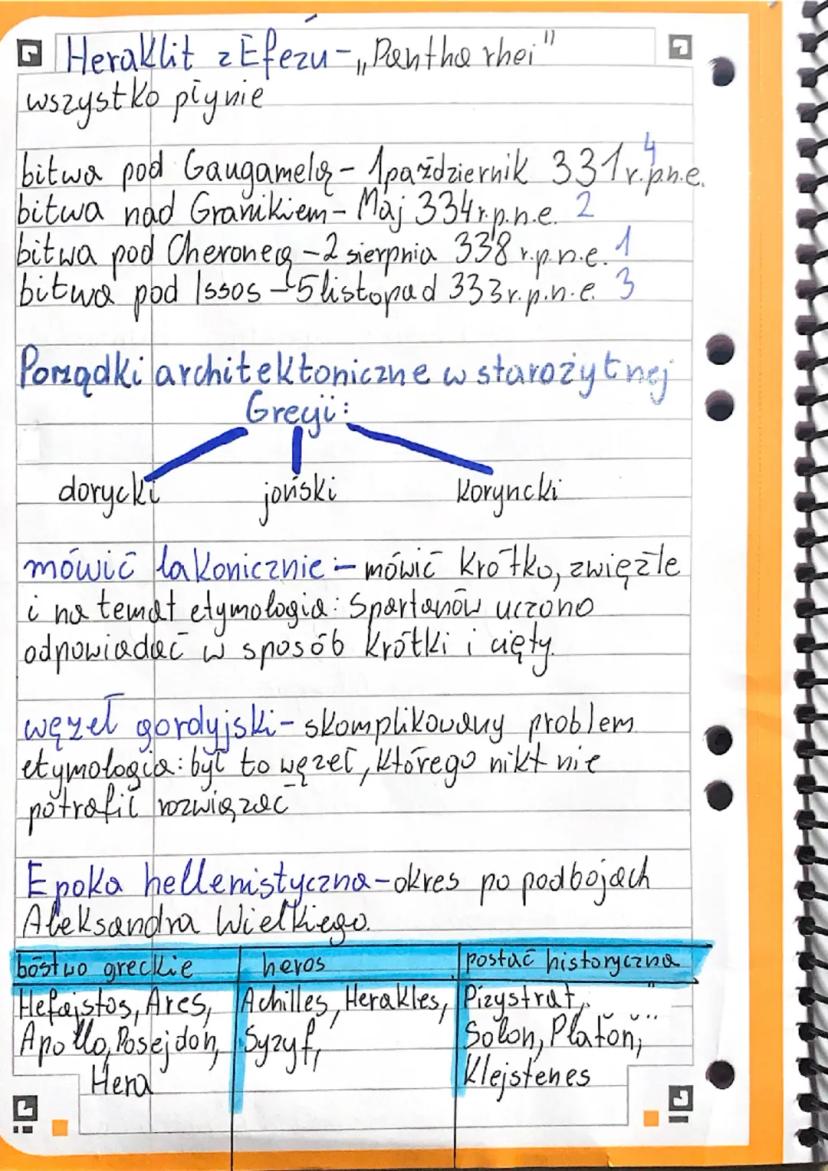 Heraklit z Efezu - „Pantha rhei"
wszystko płynie
bitwa pod Gaugamelą - 1październik 331r.p.n.e. 4
bitwa nad Granikiem - Maj 334r.p.n.e. 2
bitwa pod Cheroneą - 2 sierpnia 338 r.p.n.e. 1
bitwa pod Issos - 5listopad 333r.p.n.e. 3
Porządki architektoniczne w starożytnej
Grecji:
dorycki joński koryncki
mówić lakonicznie - mówić krótko, zwięźle
i na temat etymologia: Spartanów uczono
odpowiadać w sposób krótki i cięty.
węzeł gordyjski - skomplikowany problem
etymologia: był to węzeł, którego nikt nie
potrafił rozwiązać
Epoka hellenistyczna - okres po podbojach
Aleksandra Wielkiego.
bóstwo greckie heros postać historyczna
Hefajstos, Ares, Achilles, Herakles, Pizystrat,
Apollo, Posejdon, Syzyf, Solon, Platon,
Hera Klejstenes